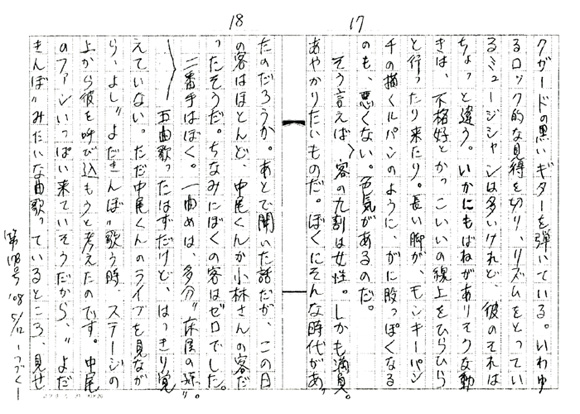 18
17
クガードの黒いギターを弾いている。いわゆ
るロック的な見得を切り、リズムをとってい
るミュージシャンは多いけれど、彼のそれは
ちょっと違う。いかにもばねがありそうな動
きは、不格好とかっこいいの線上をひらひら
と行ったり来たり。長い脚が、モンキーパン
チの描くルパンのように、がに股っぽくなる
のも、悪くない。色気があるのだ。
そう言えば、客の九割は女性。しかも満員。
あやかりたいものだ。ぼくにそんな時代があっ
たのだろうか。あとで聞いた話だが、この日
の客はほとんど、中尾くんか小林さんの客だ
ったそうだ。ちなみにぼくの客はゼロでした。
二番手はぼく。一曲めは、多分"床屋の娘"。
五曲歌ったはずだけど、はっきり覚
えていない。ただ中尾くんのライブを見なが
ら、よし"よだきんぼ"歌う時、ステージの
上から彼を呼び込もうと考えたのです。中尾
のファンいっぱい来ていそうだから、"よだ
きんぼ"みたいな曲歌っているところ、見せ
第118号 '08 5/12 ―つづく―